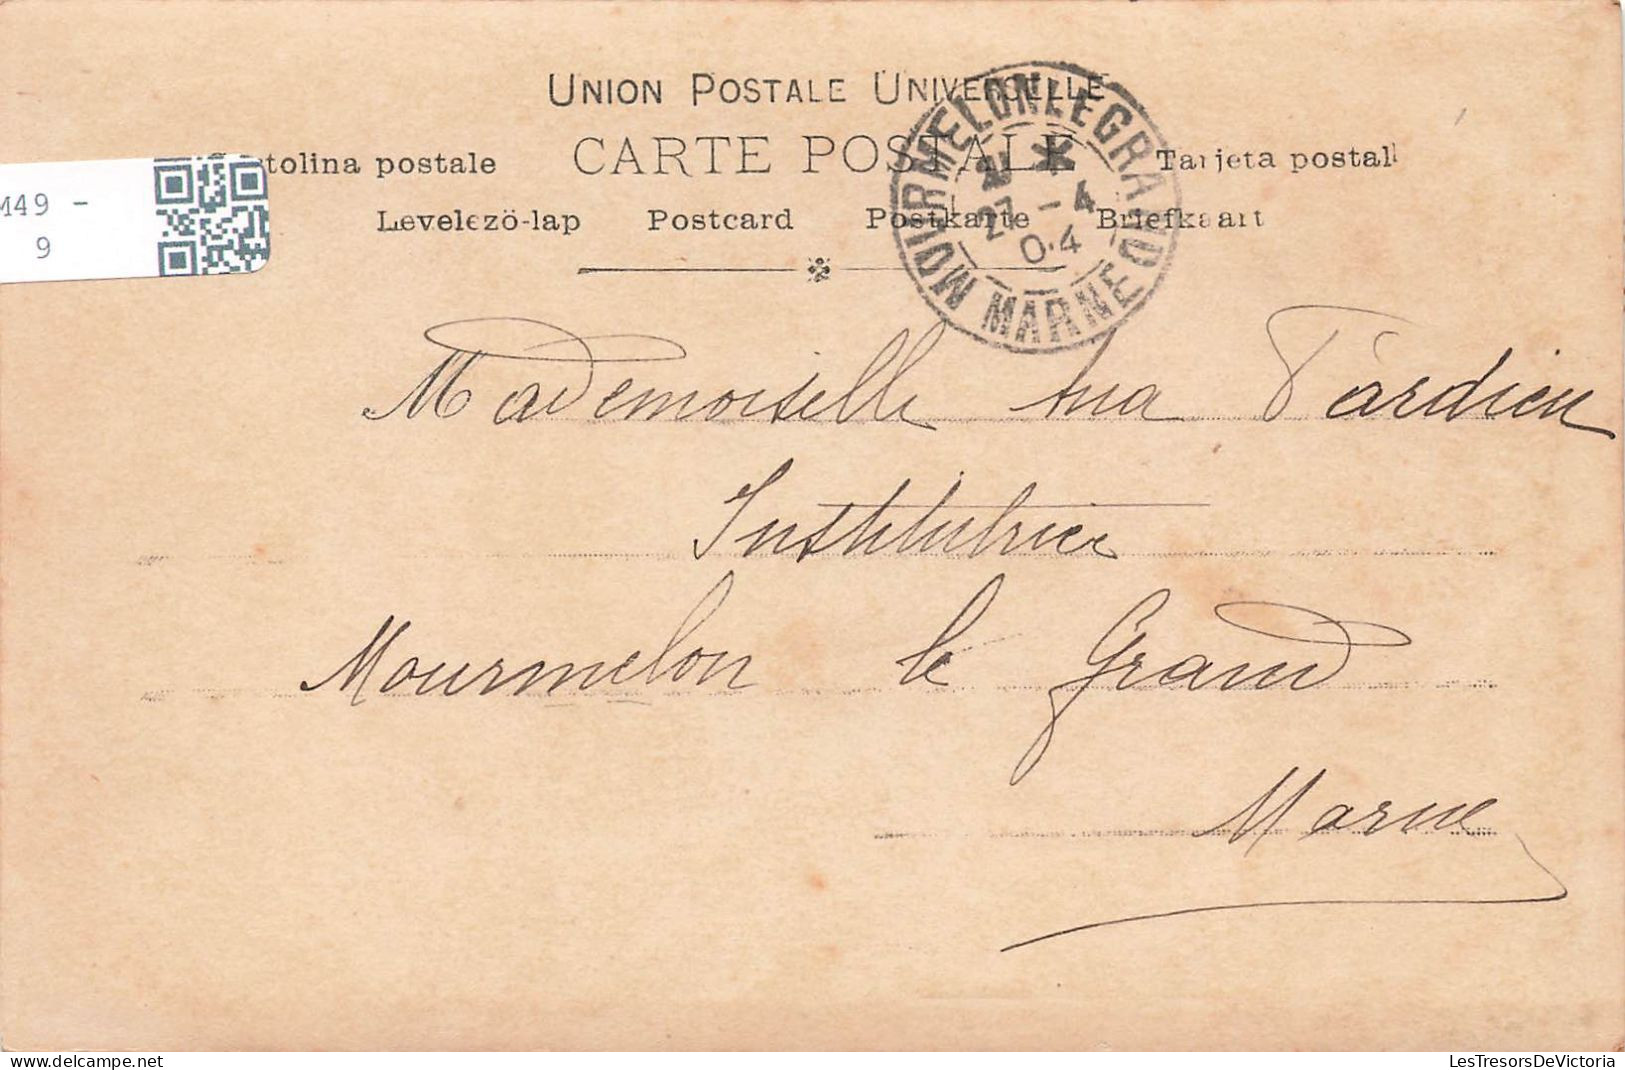 UNION POSTALE UNIVERSELLE
CARTE POSTALE
tolina postale
Tarjeta postal
Levelező-lap Postcard Postkarte Briefkaart
MOURMELON LE GRAND
27 - 4
04
MARNE
M49 -
9
Mademoiselle Tardieu
Institutrice
Mourmelon le Grand
Marne
delcampe.net
LesTresorsDeVictoria